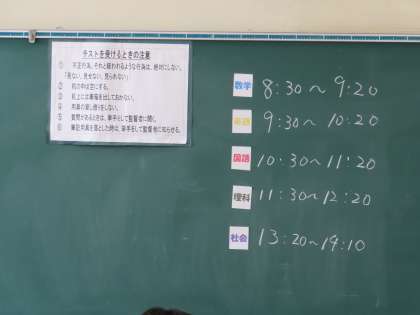 テストを受けるときの注意
① 不正行為、それと疑われるような行為は、絶対にしない。
「見ない、見せない、見られない」
② 机の中は空にする。
③ 机上には筆箱を出しておかない。
④ 用具の貸し借りをしない。
⑤ 質問があるときは、挙手をして監督者に聞く。
⑥ 筆記用具を落とした時は、挙手をして監督者に知らせる。
数学 8:30～9:20
英語 9:30～10:20
国語 10:30～11:20
理科 11:30～12:20
社会 13:20～14:10